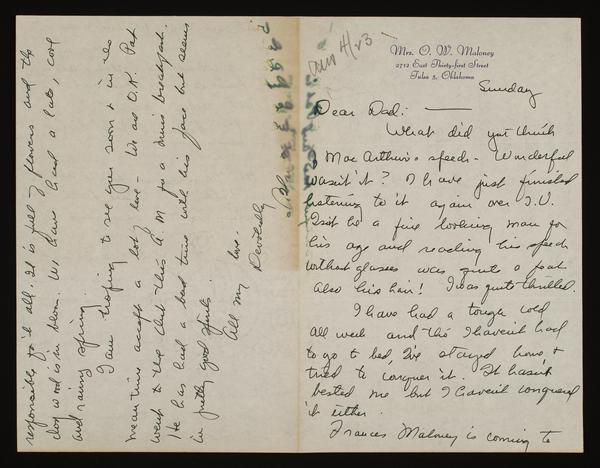 Ans 4/23
Mrs. O. W. Maloney
2712 East Thirty-first Street
Tulsa 5, Oklahoma
Sunday
Dear Dad: —
What did you think
of MacArthur's speech - Wonderful
wasn't it? I have just finished
listening to it again over T.V.
Isn't he a fine looking man for
his age and reading his speech
without glasses was quite a feat
also his hair! I was quite thrilled.
I have had a tough cold
all week and tho I haven't had
to go to bed, I've stayed home &
tried to conquer it. It hasn't
bested me but I haven't conquered
it either.
Frances Maloney is coming to
responsible for it all. It is full of flowers and the
dog wood is in bloom. We have had a late, cold
and rainy spring.
I am hoping to see you soon & in the
meantime accept a lot of love - We are O.K. Pat
went to the Club this A.M. for a mens breakfast.
He has had a bad time with his face but seems
in pretty good spirits.
All my love -
Devotedly